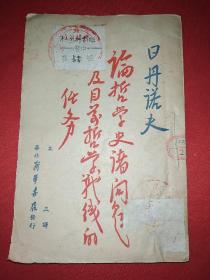 日丹諾夫
論哲學史諸問題
及目前哲學戰線的
任务
立三譯
華北新華書店發行